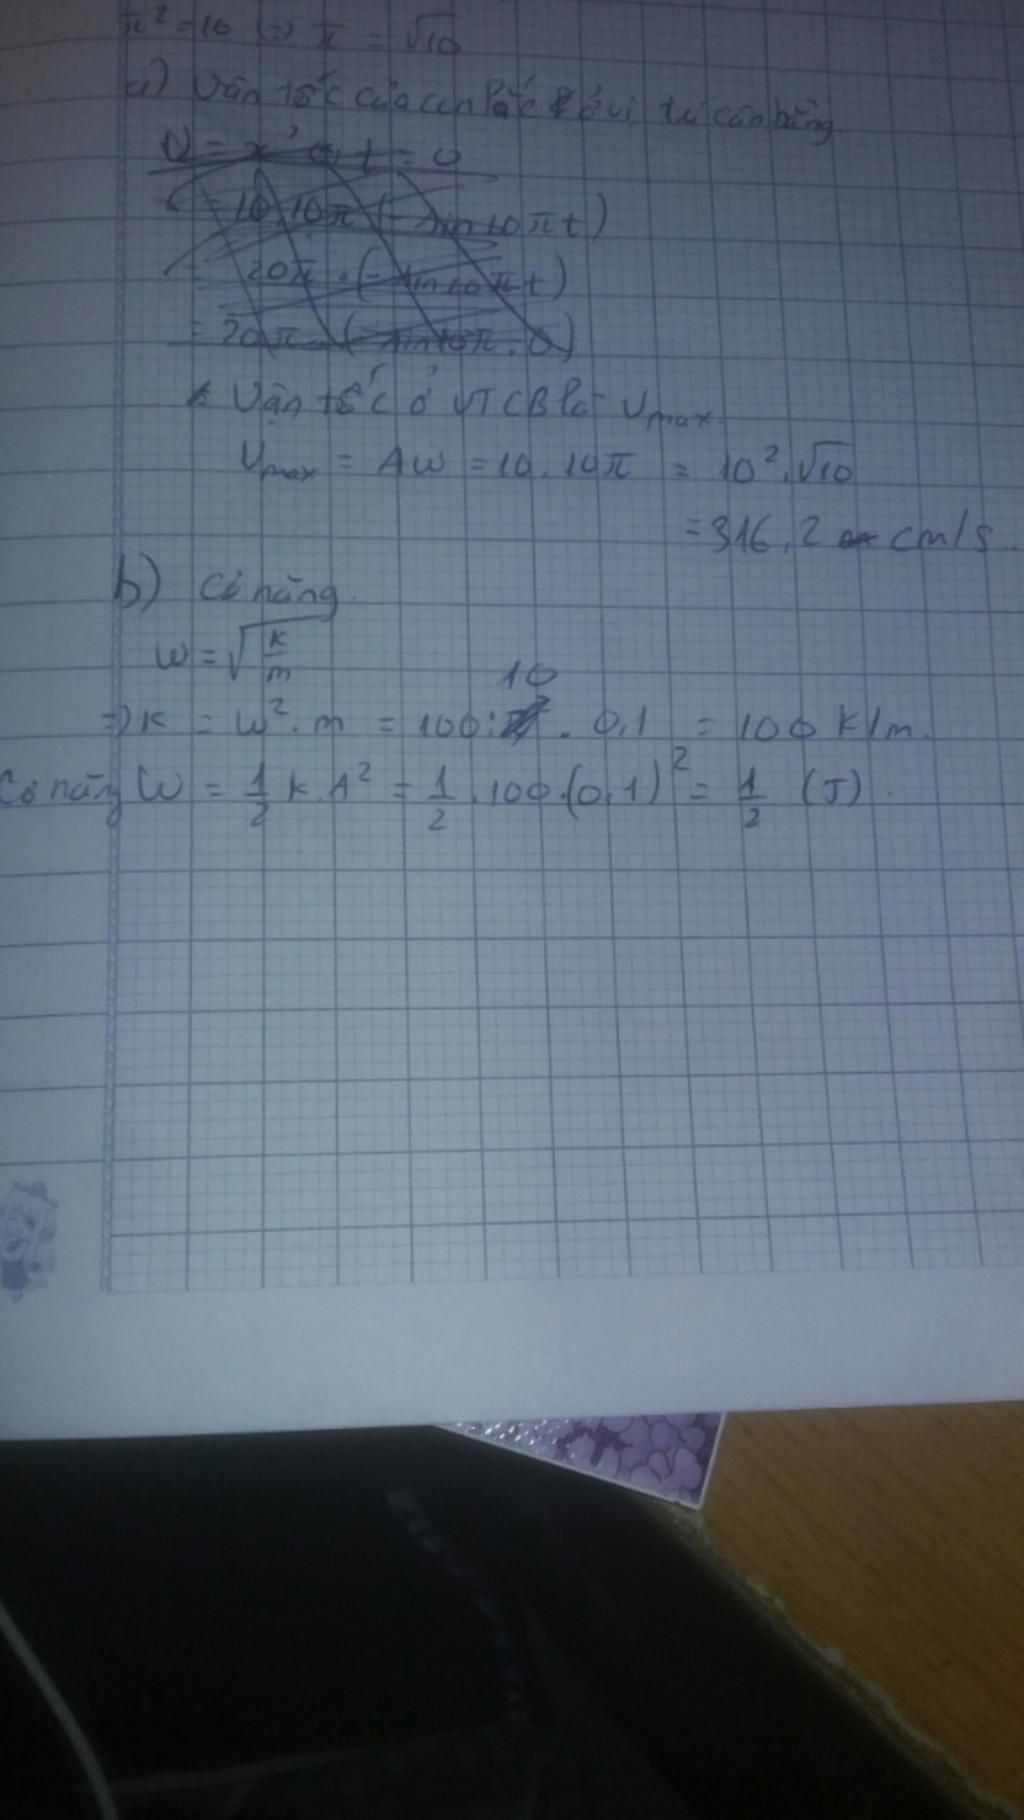 π² = 10 (=) π = √10
a) Vận tốc của con lắc ở vị trí cân bằng
V = x' t = 0
= 10.10π (- sin 10πt)
= 20π . (- sin 10πt)
= 20π (- sin 10π . 0)
Vận tốc ở VTCB là Vmax
Vmax = Aω = 10 . 10π = 10² . √10
= 316,2 cm/s.
b) Cơ năng.
ω = √k/m
10
=) K = ω² . m = 100 . 0,1 = 100 K/m.
Cơ năng W = 1/2 K.A² = 1/2 . 100.(0,1)² = 1/2 (J).